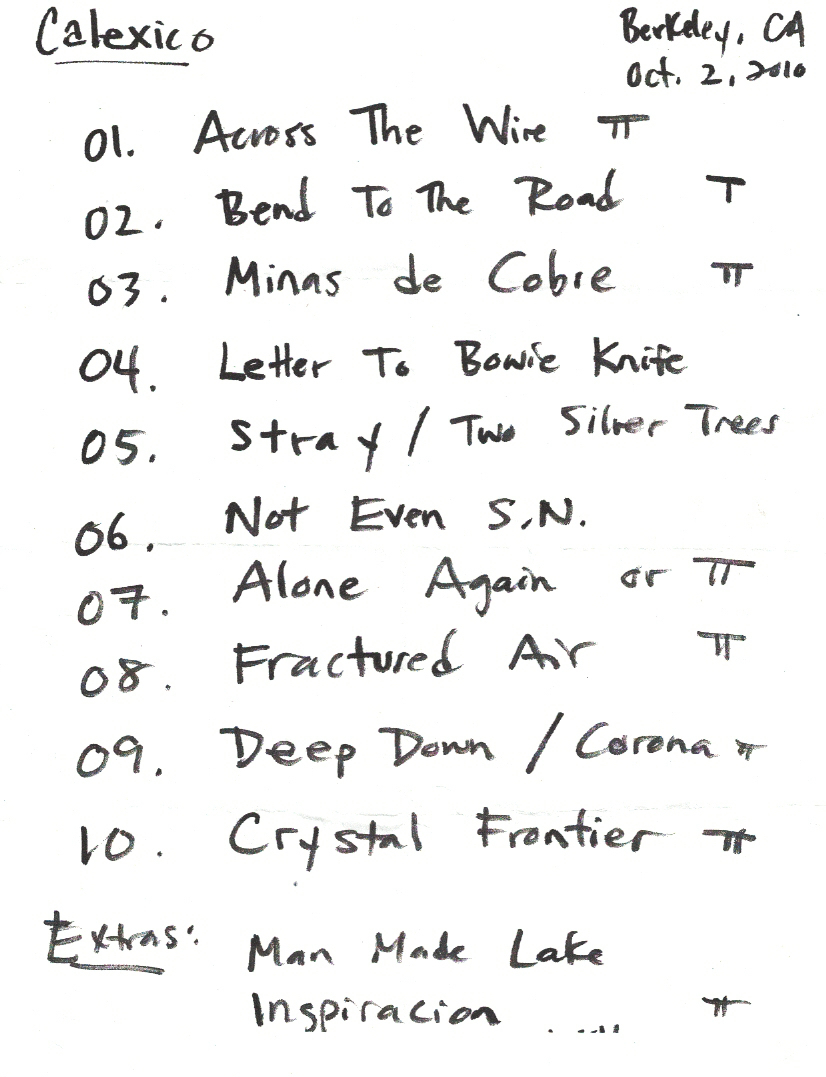 Calexico
Berkeley, CA
Oct. 2, 2010
01. Across The Wire TT
02. Bend To The Road T
03. Minas de Cobre TT
04. Letter To Bowie Knife
05. Stray / Two Silver Trees
06. Not Even S.N.
07. Alone Again or TT
08. Fractured Air TT
09. Deep Down / Corona TT
10. Crystal Frontier TT
Extras: Man Made Lake
Inspiracion TT